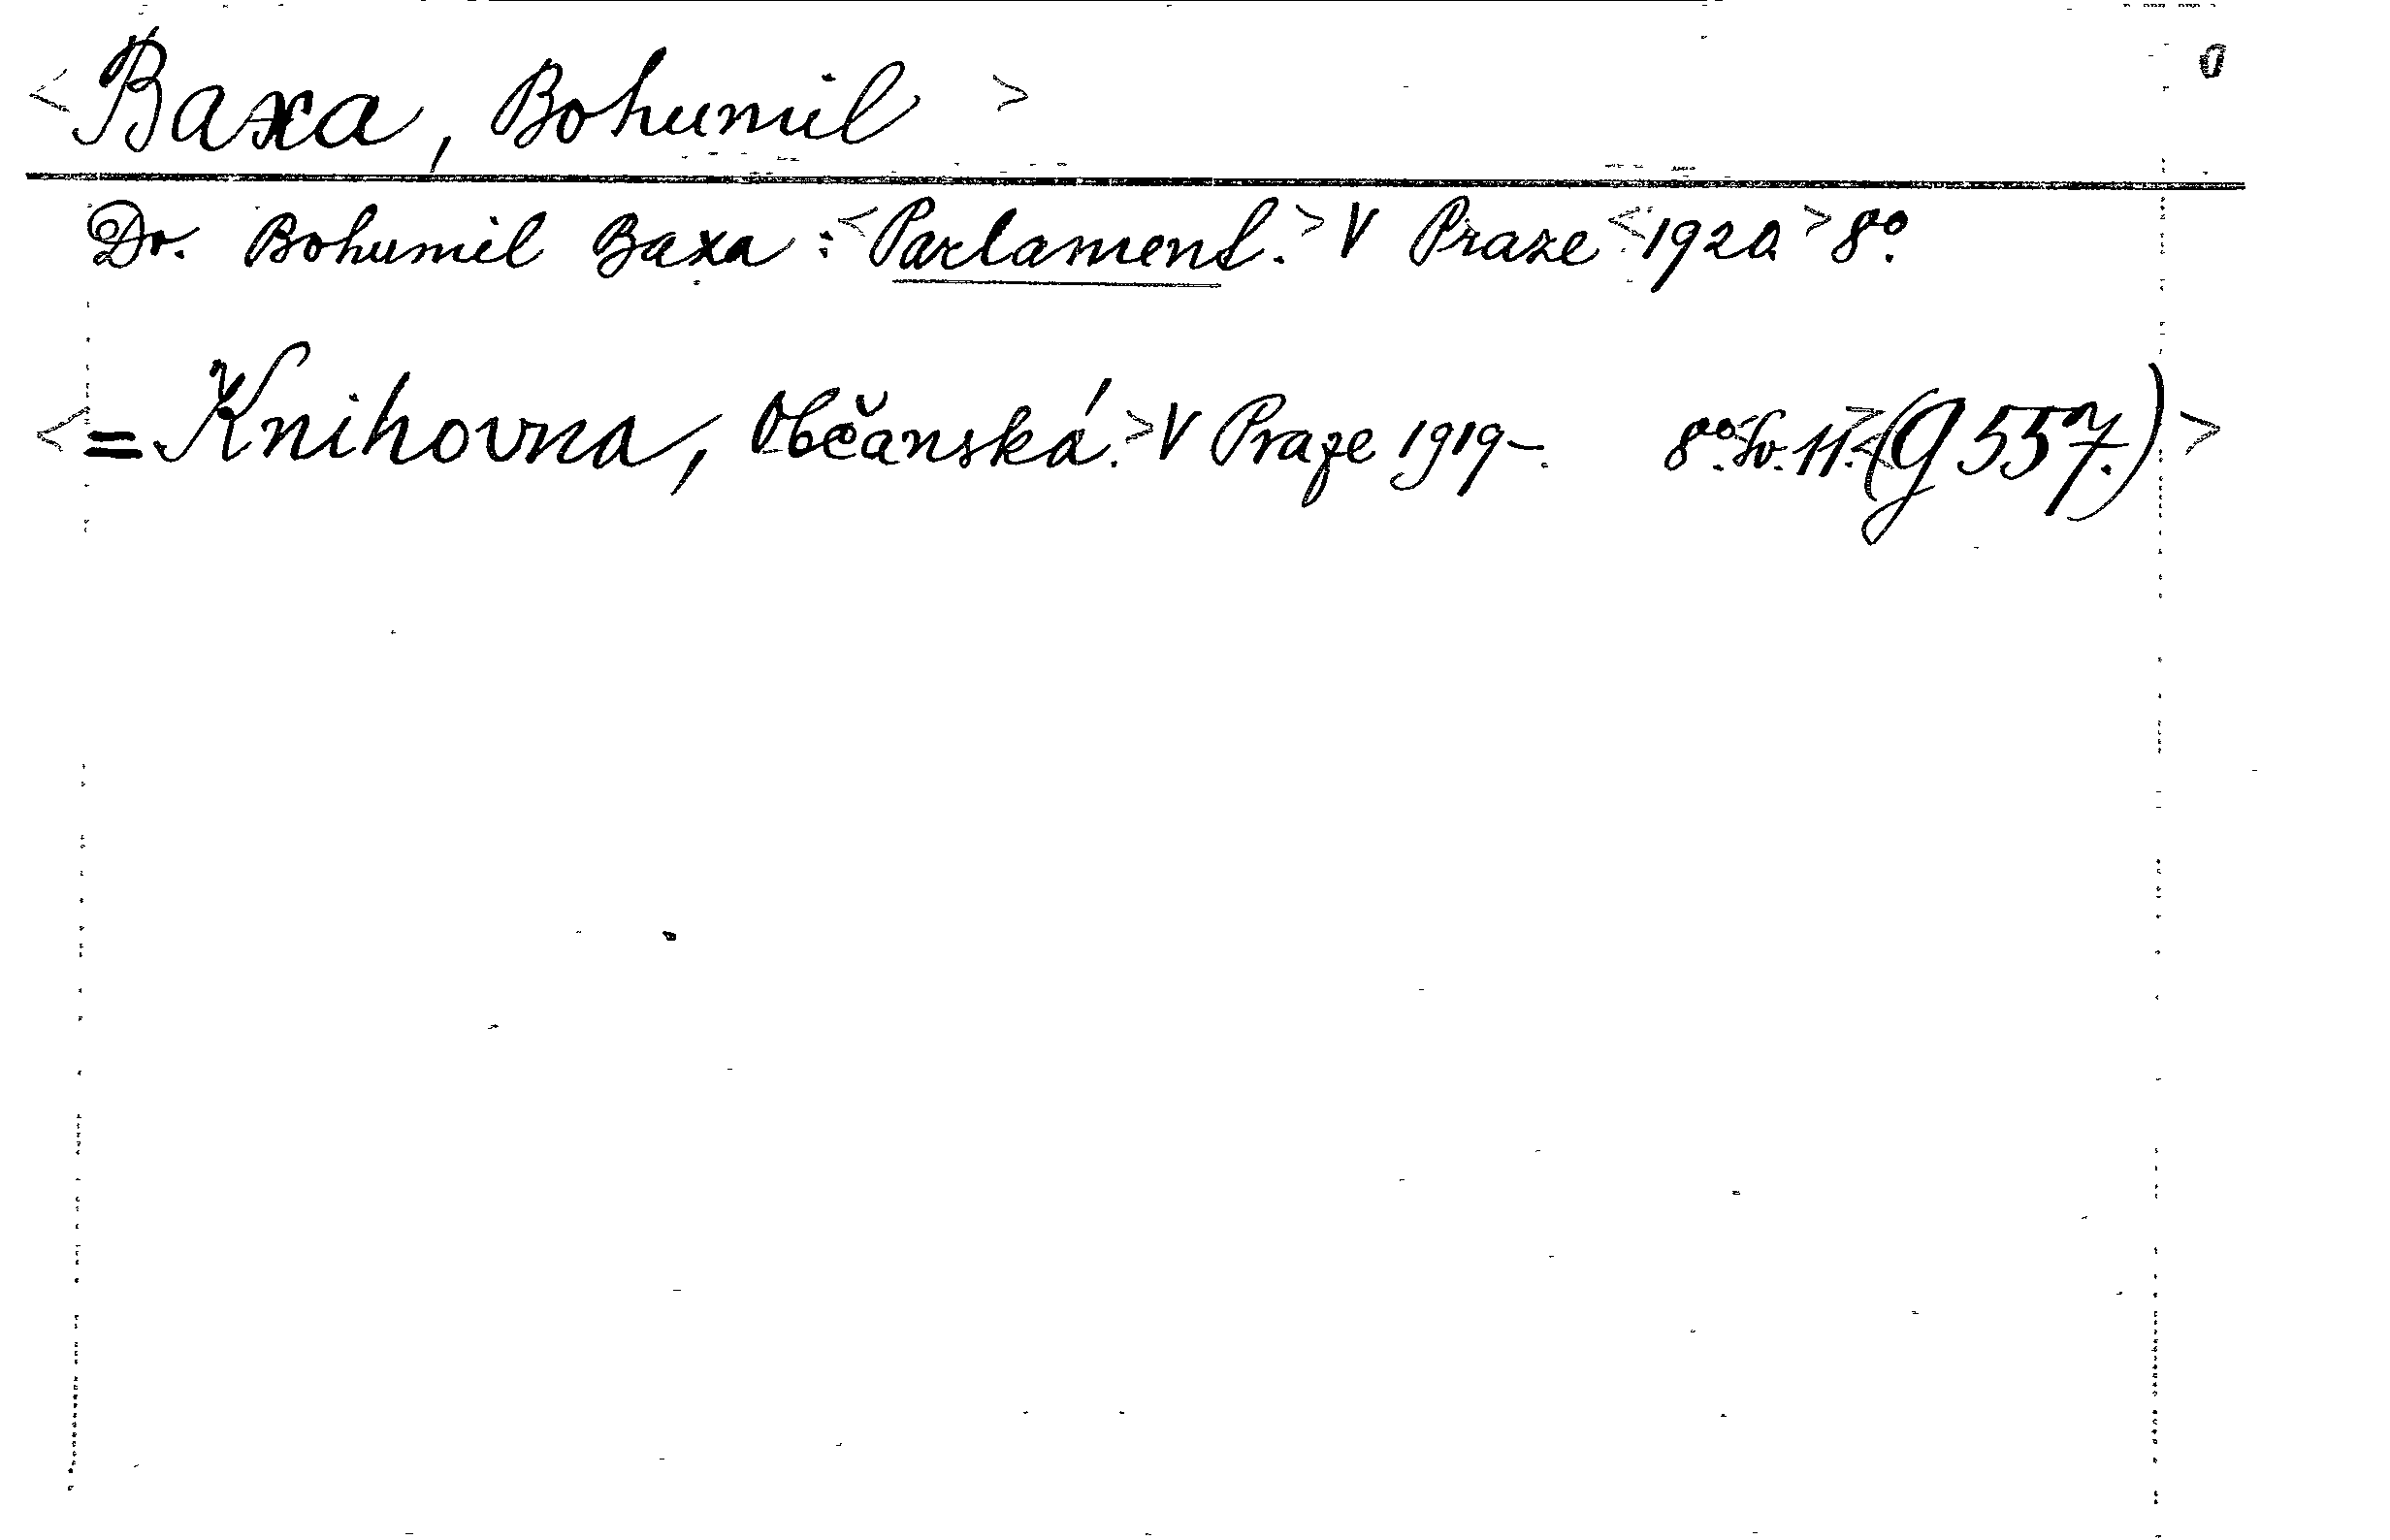 <Baxa, Bohumil> 0
Dr. Bohumil Baxa : <Parlament.> V Praze <1920.> 8º.
<= Knihovna, Občanská.> V Praze 1919-. 8º. <Sv. 11.> <(G 557.)>